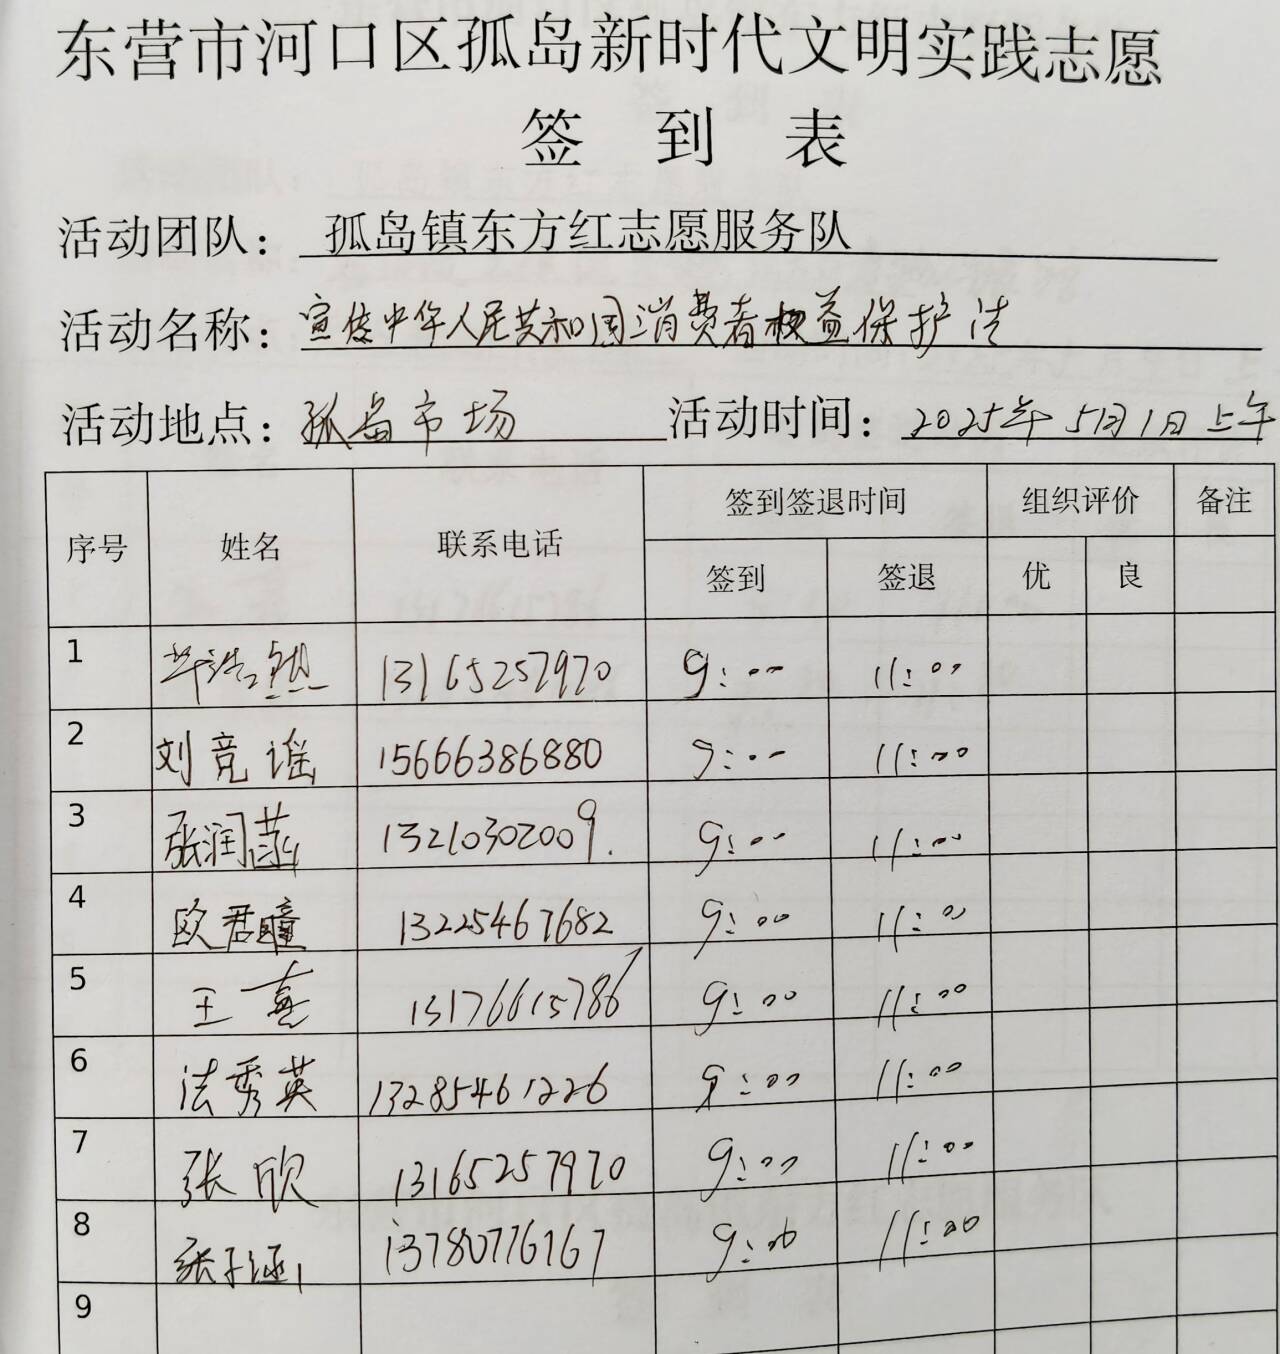 东营市河口区孤岛新时代文明实践志愿
签 到 表
活动团队：孤岛镇东方红志愿服务队
活动名称：宣传中华人民共和国消费者权益保护法
活动地点：孤岛市场 活动时间：2025年5月1日上午
序号 姓名 联系电话 签到签退时间 组织评价 备注
签到 签退 优 良
1 13165257970 9:00 11:00
2 刘竞谣 15666386880 9:00 11:00
3 张润菡 13210302009. 9:00 11:00
4 欧君瞳 13225467682 9:00 11:00
5 王喜 13176615786 9:00 11:00
6 法秀英 13285461226 9:00 11:00
7 张欣 13165257970 9:00 11:00
8 张子涵 13780776767 9:00 11:00
9